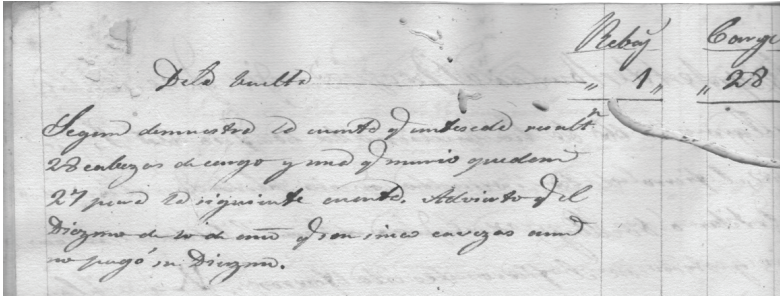 Rebaj Cargo
De la vuelta " 1 " " 28
Segun demuestra la cuenta q antesede result.n
28 cabezas de cargo y una q murio quedan
27 para la siguiente cuenta. Advierto q el
Diezmo de de son sinco cavezas
no pagó su Diezmo.